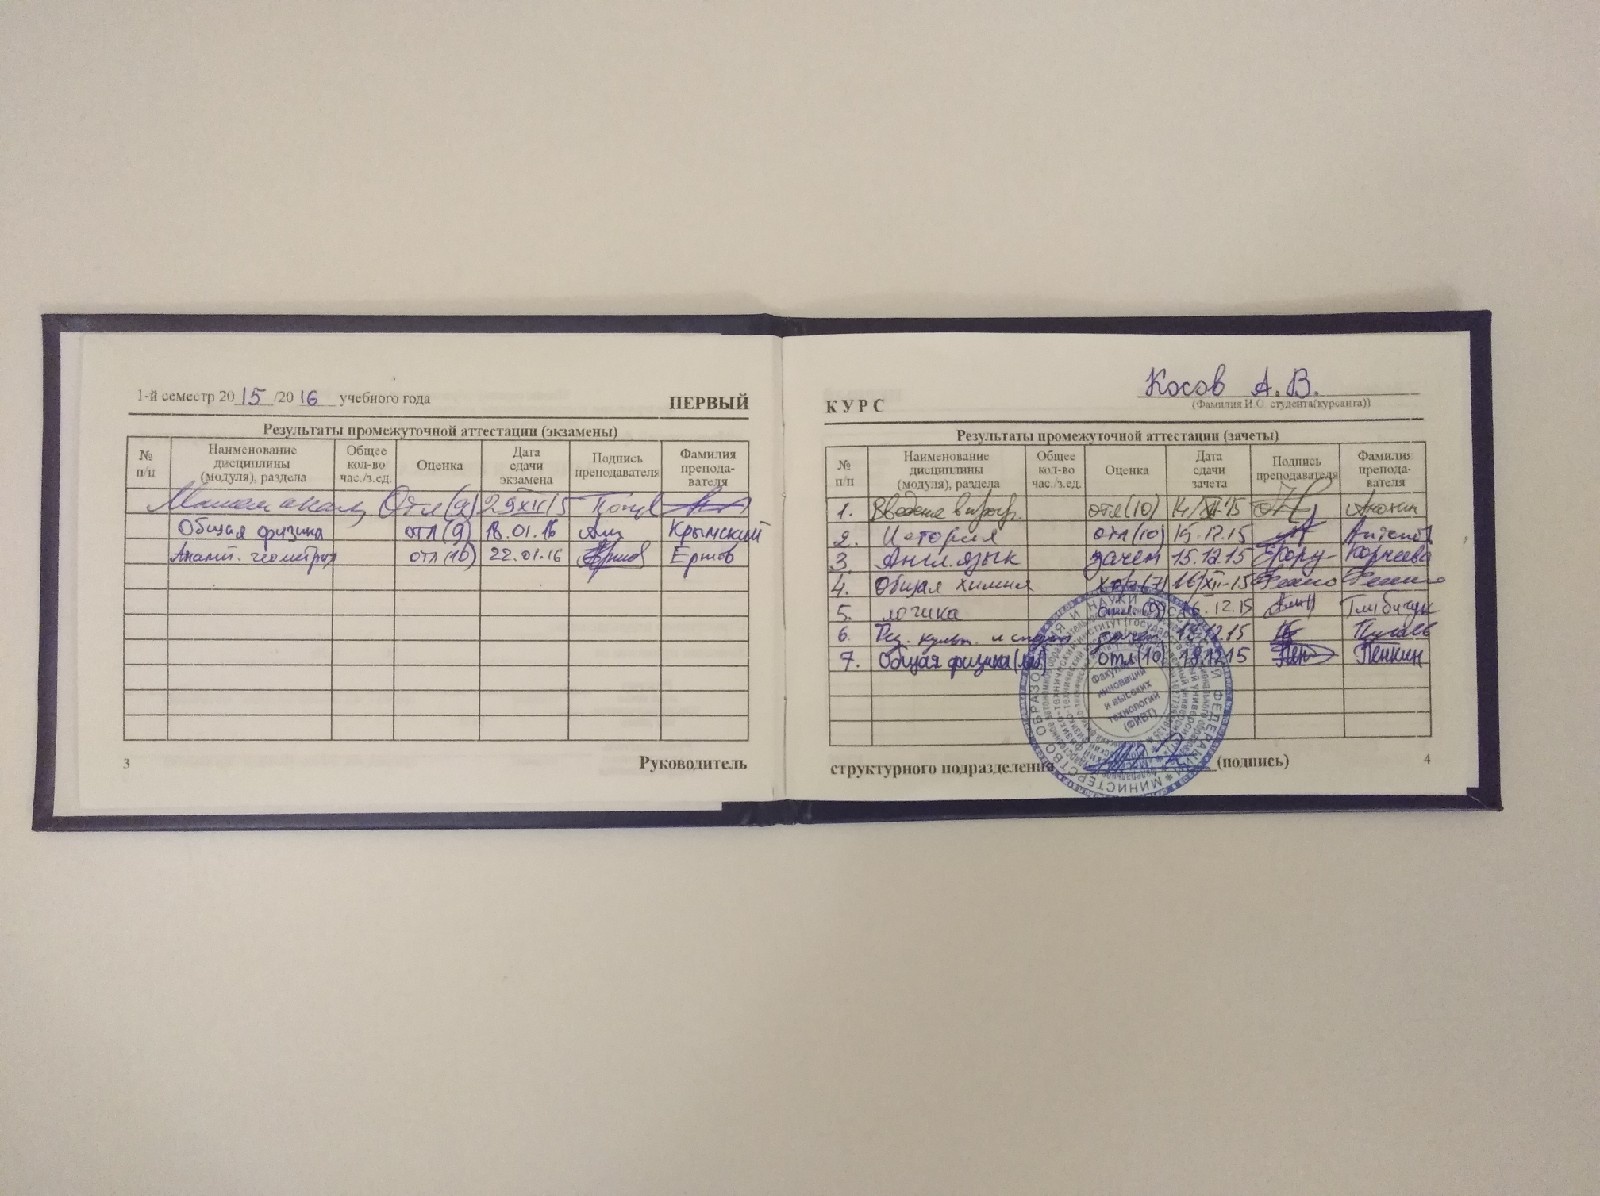 1-й семестр 2015/2016 учебного года
ПЕРВЫЙ
Результаты промежуточной аттестации (экзамены)
№ п/п Наименование дисциплины (модуля), раздела Общее кол-во час./з.ед. Оценка Дата сдачи экзамена Подпись преподавателя Фамилия препода-вателя
Отл(9) 29 XII 15
Общая физика отл(9) 18.01.16 Крымский
Аналит. геометрия отл(10) 22.01.16 Ершов
3
Руководитель
Косов А.В.
КУРС
(Фамилия И.О. студента(курсанта))
Результаты промежуточной аттестации (зачеты)
№ п/п Наименование дисциплины (модуля), раздела Общее кол-во час./з.ед. Оценка Дата сдачи зачета Подпись преподавателя Фамилия препода-вателя
1. Введение в отл(10) 14/XII-15
2. История отл(10) 15.12.15
3. Англ. язык зачет 15.12.15 Корнеева
4. Общая химия хор(7) 16/XII-15
5. логика 12.15
6. Физ. культ. и спорт зачет 12.15
7. Общая физика(лаб) отл(10) 18.12.15 Пенкин
Факультет инноваций и высоких технологий (ФИВТ)
структурного подразделения (подпись)
4